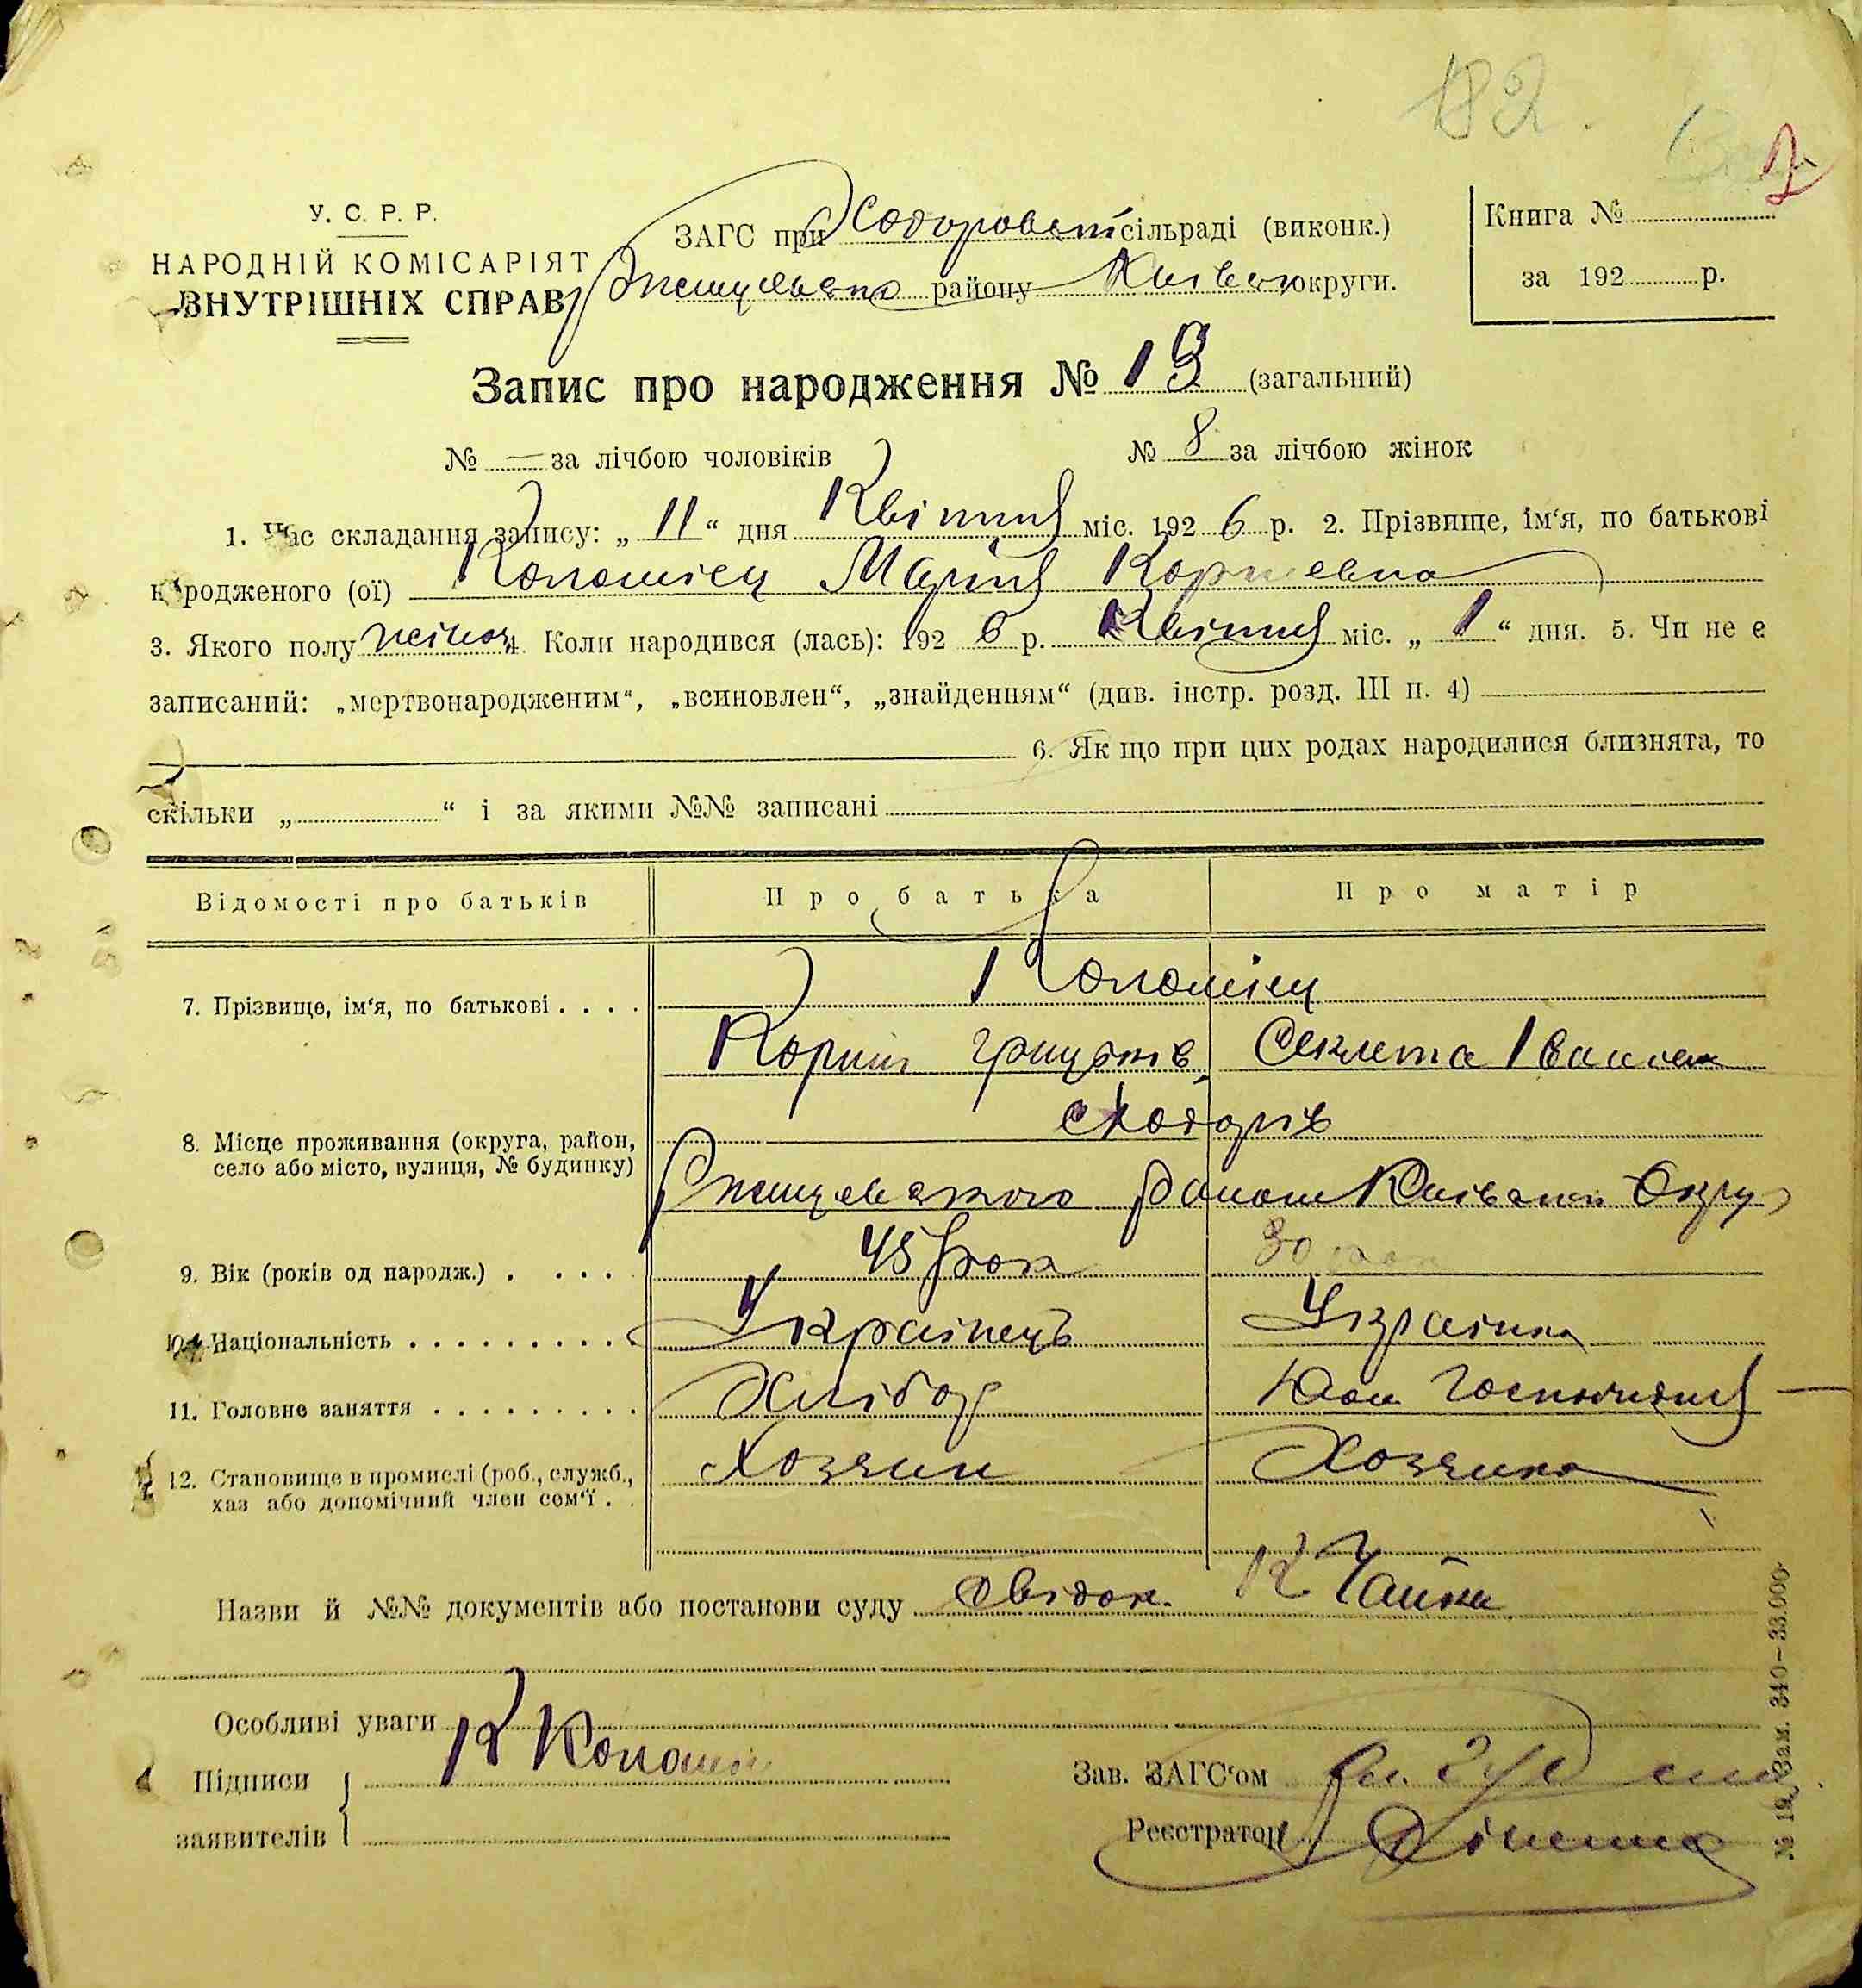 182.
У. С. Р. Р.
НАРОДНІЙ КОМІСАРІЯТ
ВНУТРІШНІХ СПРАВ
ЗАГС при Ходоровській сільраді (виконк.)
району Київської округи.
Книга №
за 192 р.
Запис про народження № 19 (загальний)
№ — за лічбою чоловіків № 8 за лічбою жінок
1. Час складання запису: „ 11 “ дня Квітня міс. 192 6 р. 2. Прізвище, ім'я, по батькові
народженого (ої) Коломієц Марія Корнѣевна
3. Якого полу жіноч 4. Коли народився (лась): 192 6 р. Квітня міс. „ 1 “ дня. 5. Чи не є
записаний: „мертвонародженим“, „всиновлен“, „знайденням“ (див. інстр. розд. III п. 4)
6. Як що при цих родах народилися близнята, то
скільки „ “ і за якими №№ записані
Відомості про батьків Про батька Про матір
7. Прізвище, ім'я, по батькові . . . .
Коломієц
Корній Грицьків Секлета Іванов
8. Місце проживання (округа, район, село або місто, вулиця, № будинку)
с Ходорів
Ржищевського району Київської Округ
9. Вік (років од народж.) . . . . . 45 рок 30 рок
10. Національність . . . . . . . . . Українець Українка
11. Головне заняття . . . . . . . . . Хлібор Дом Господиня
12. Становище в промислі (роб., служб., хаз або допомічний член сем'ї . . Хозяин Хозяика
Назви й №№ документів або постанови суду свідок. К Чайка
Особливі уваги
Підписи
заявителів
К Коломіє
Зав. ЗАГС'ом
Реєстратор
№ 19. Зам. 340–33.000